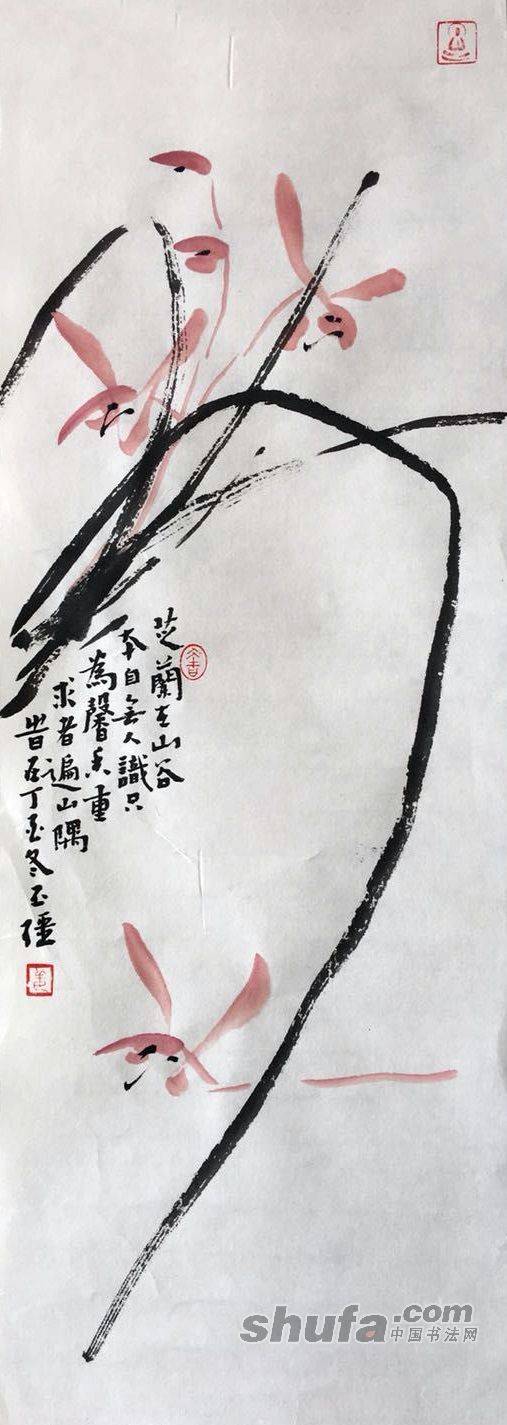 芝蘭在山谷
本自無人識只
為馨香重
求者遍山隅
旹丁酉冬
shufa.com
中国书法网